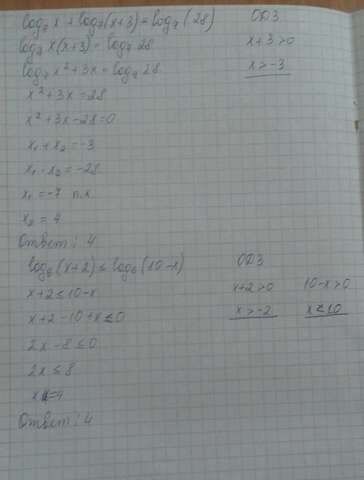 log₇ x + log₇(x+3) = log₇(28) ОДЗ
log₇ x(x+3) = log₇ 28 x+3>0
log₇ x²+3x = log₇ 28 x>-3
x²+3x=28
x²+3x-28=0
x₁+x₂=-3
x₁·x₂=-28
x₁=-7 п.к
x₂=4
Ответ: 4
log₆(x+2)≤log₆(10-x) ОДЗ
x+2≤10-x x+2>0 10-x>0
x+2-10+x≤0 x>-2 x<10
2x-8≤0
2x≤8
x=4
Ответ: 4